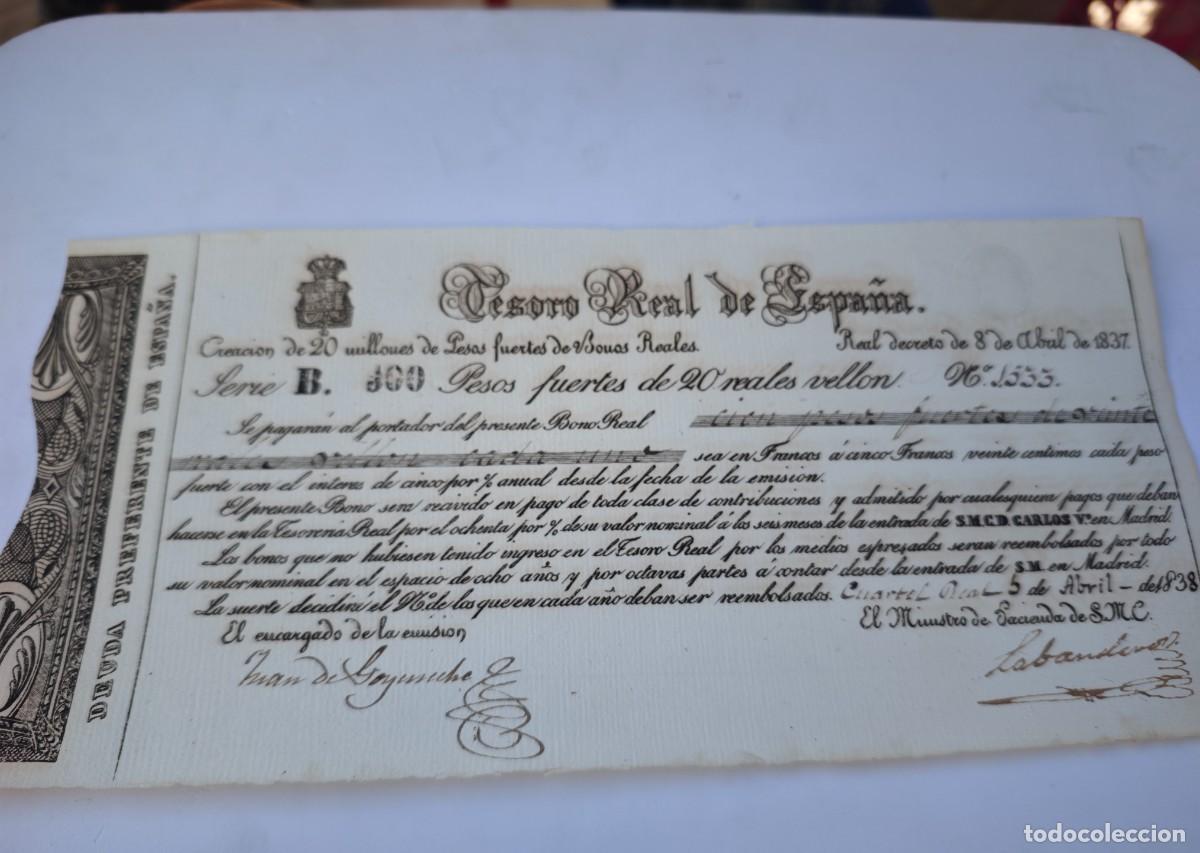 DEUDA PREFERENTE DE ESPAÑA.
Tesoro Real de España.
Creacion de 20 millones de Pesos fuertes de Bonos Reales. Real decreto de 8 de Abril de 1837.
Serie B. 100 Pesos fuertes de 20 reales vellon. Nº 1533.
Se pagarán al portador del presente Bono Real cien pesos fuertes de veinte
reales vellon cada uno sea en Francos á cinco Francos veinte centimos cada peso
fuerte con el interes de cinco por % anual desde la fecha de la emision.
El presente Bono sera recivido en pago de toda clase de contribuciones y admitido por cualesquiera pagos que deban
hacerse en la Tesoreria Real por el ochenta por % de su valor nominal á los seis meses de la entrada de S.M.C.D. CARLOS Vº en Madrid.
Los bonos que no hubiesen tenido ingreso en el Tesoro Real por los medios espresados seran reembolsados por todo
su valor nominal en el espacio de ocho años y por octavas partes a contar desde la entrada de S.M. en Madrid.
La suerte decidirá el Nº de los que en cada año deban ser reembolsados. Cuartel Real 5 de Abril - de 1838
El encargado de la emision El Ministro de Hacienda de S.M.C.
Juan de Goyeneche Labandero
todocoleccion